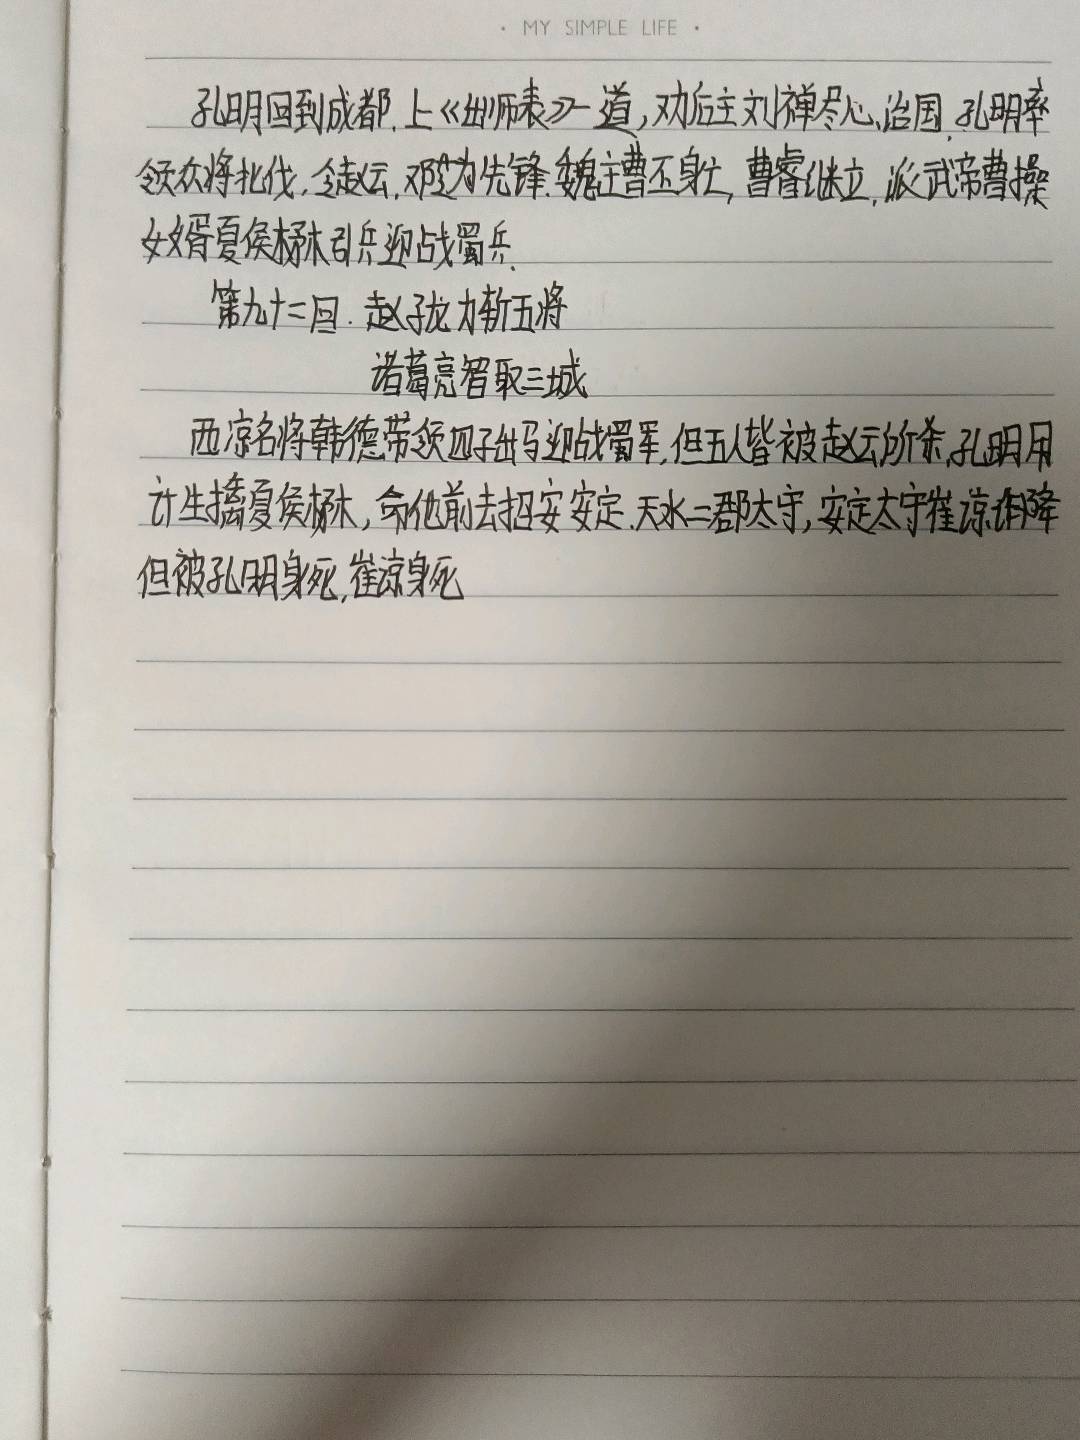 · MY SIMPLE LIFE ·
孔明回到成都,上《出师表》一道,劝后主刘禅尽心治国.孔明率
领众将北伐,令赵云,邓芝为先锋.魏主曹丕身亡,曹睿继立,派武帝曹操
女婿夏侯楙引兵迎战蜀兵.
第九十二回.赵子龙力斩五将
诸葛亮智取三城
西凉名将韩德带领四子出马迎战蜀军,但五人皆被赵云所杀,孔明用
计生擒夏侯楙,命他前去招安安定.天水二郡太守,安定太守崔谅诈降
但被孔明身死,崔谅身死